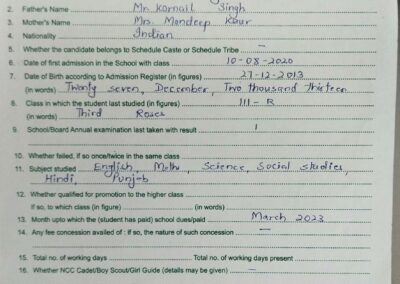 2. Father's Name Mr. Kornail Singh
3. Mother's Name Mrs. Mandeep Kaur
4. Nationality Indian
5. Whether the candidate belongs to Schedule Caste or Schedule Tribe –
6. Date of first admission in the School with class 10-08-2020
7. Date of Birth according to Admission Register (in figures) 27-12-2013
(in words) Twenty seven, December, Two thousand Thirteen
8. Class in which the student last studied (in figures) III - R
(in words) Third Roses
9. School/Board Annual examination last taken with result
10. Whether failed, if so once/twice in the same class
11. Subject studied English, Math, Science, Social studies,
Hindi, Punjab
12. Whether qualified for promotion to the higher class
If so, to which class (in figure) (in words)
13. Month upto which the (student has paid) school dues/paid March 2023
14. Any fee concession availed of : if so, the nature of such concession –
15. Total no. of working days Total no. of working days present
16. Whether NCC Cadet/Boy Scout/Girl Guide (details may be given) –